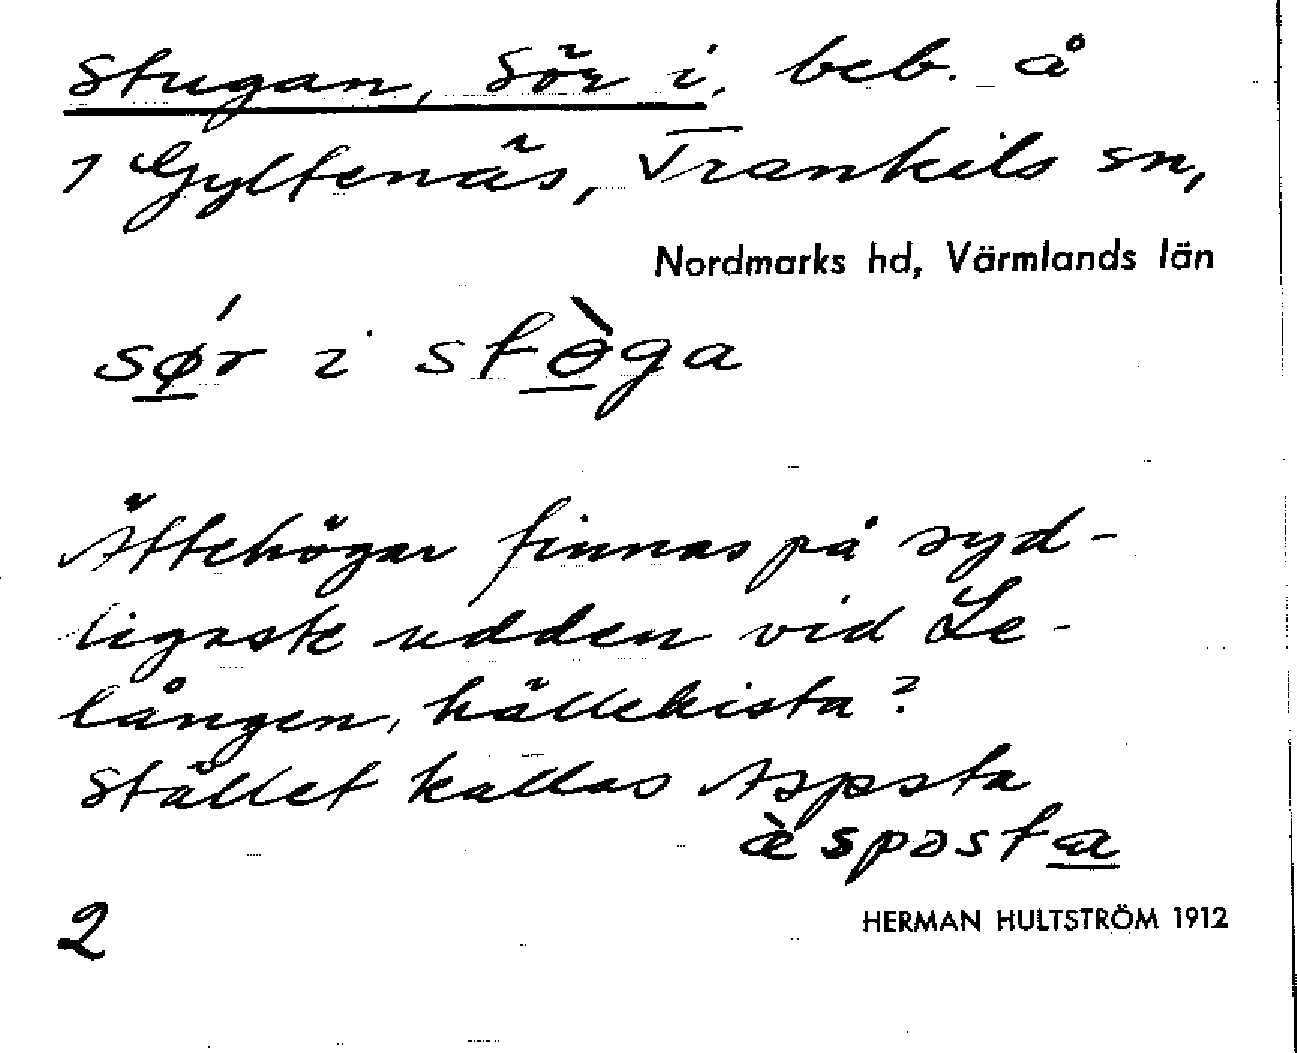 Stugan, Sör i, beb. å
1 Gyltenäs, Trankils sn,
Nordmarks hd, Värmlands län
sǿr i stɵ̀ga
Ättehögar finnas på syd-
ligaste udden vid Le-
lången, hällekista?
Stället kallas Aspsta
æ̀spəsta
2
HERMAN HULTSTRÖM 1912